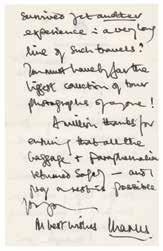 survived yet another
experience in a very long
line of such travels?
You must have by far the
biggest collection of tour
photographs of anyone!
A million thanks for
ensuring that all the
baggage + Paraphernalia
returned safely – and
pray a rest is possible
for you
All best wishes Charles